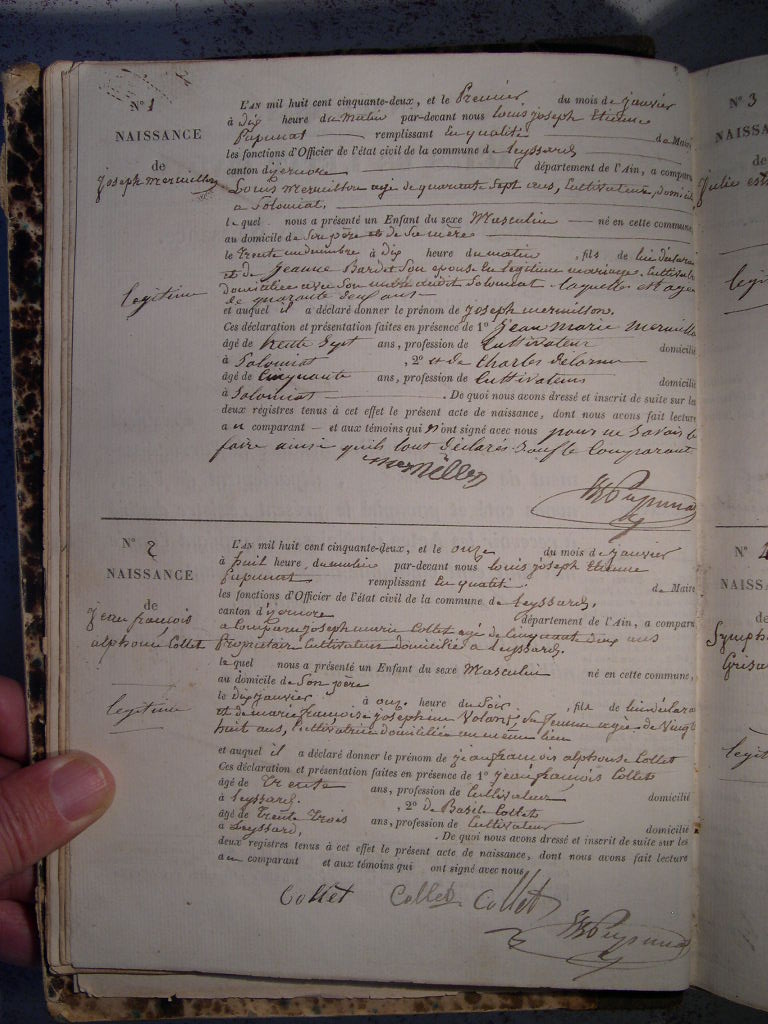 N° 1
NAISSANCE
de
joseph mermillon
legitime
L'AN mil huit cent cinquante-deux, et le Premier du mois de janvier
à dix heure du matin par-devant nous Louis joseph Etienne
Pupunat remplissant en qualité de Maire
les fonctions d'Officier de l'état civil de la commune de Leyssard
canton d'izernore département de l'Ain, a comparu
Louis mermillon agé de quarante sept ans, Cultivateur, domicil
a Solomiat.
le quel nous a présenté un Enfant du sexe Masculin né en cette commune,
au domicile de Son père et de Sa mère
le trente un décembre à dix heure du matin, fils de lui déclarant
et de jeanne Bardet Son épouse en légitime mariage, Cultivatr
domiciliée avec Son mari audit Solomiat laquelle est agée
de quarante deux ans
et auquel il a déclaré donner le prénom de joseph mermillon.
Ces déclaration et présentation faites en présence de 1° Jean Marie Mermillo
âgé de trente Sept ans, profession de Cultivateur domicilié
à Solomiat, 2° et de Charles Delorme
âgé de Cinquante ans, profession de Cultivateur domicilié
à Solomiat. De quoi nous avons dressé et inscrit de suite sur les
deux registres tenus à cet effet le présent acte de naissance, dont nous avons fait lecture
a u comparant et aux témoins qui n'ont signé avec nous pour ne Savoir le
faire ainsi qu'ils l'ont déclaré Sauf le Comparant
mermillon
Pupunat
N° 2
NAISSANCE
de
Jean françois
alphonse Collet
legitime
L'AN mil huit cent cinquante-deux, et le onze du mois de janvier
à huit heure du matin par-devant nous Louis joseph Etienne
Pupunat remplissant en qualité de Maire
les fonctions d'Officier de l'état civil de la commune de Leyssard,
canton d'izernore département de l'Ain, a comparu
a Comparu joseph marie Collet agé de Cinquante Deux ans
Propriétaire Cultivateur domicilié à Leyssard.
le quel nous a présenté un Enfant du sexe Masculin né en cette commune,
au domicile de Son père
le dix janvier à onze heure du Soir, fils de lui déclarant
et de marie françoise josephine Volant, Sa femme agée de Vingt
huit ans, Cultivatrice domiciliée au même lieu
et auquel il a déclaré donner le prénom de jean françois alphonse Collet
Ces déclaration et présentation faites en présence de 1° jean françois Collet
âgé de Trente ans, profession de Cultivateur domicilié
à Leyssard, 2° de Basile Collet
âgé de Trente Trois ans, profession de Cultivateur domicilié
à Leyssard. De quoi nous avons dressé et inscrit de suite sur les
deux registres tenus à cet effet le présent acte de naissance, dont nous avons fait lecture
a u comparant et aux témoins qui ont signé avec nous
Collet Collet Collet
Pupunat
N° 3
NAISS
de
Julie
legi
N°
NAISS
de
Symph
Grisa
legi